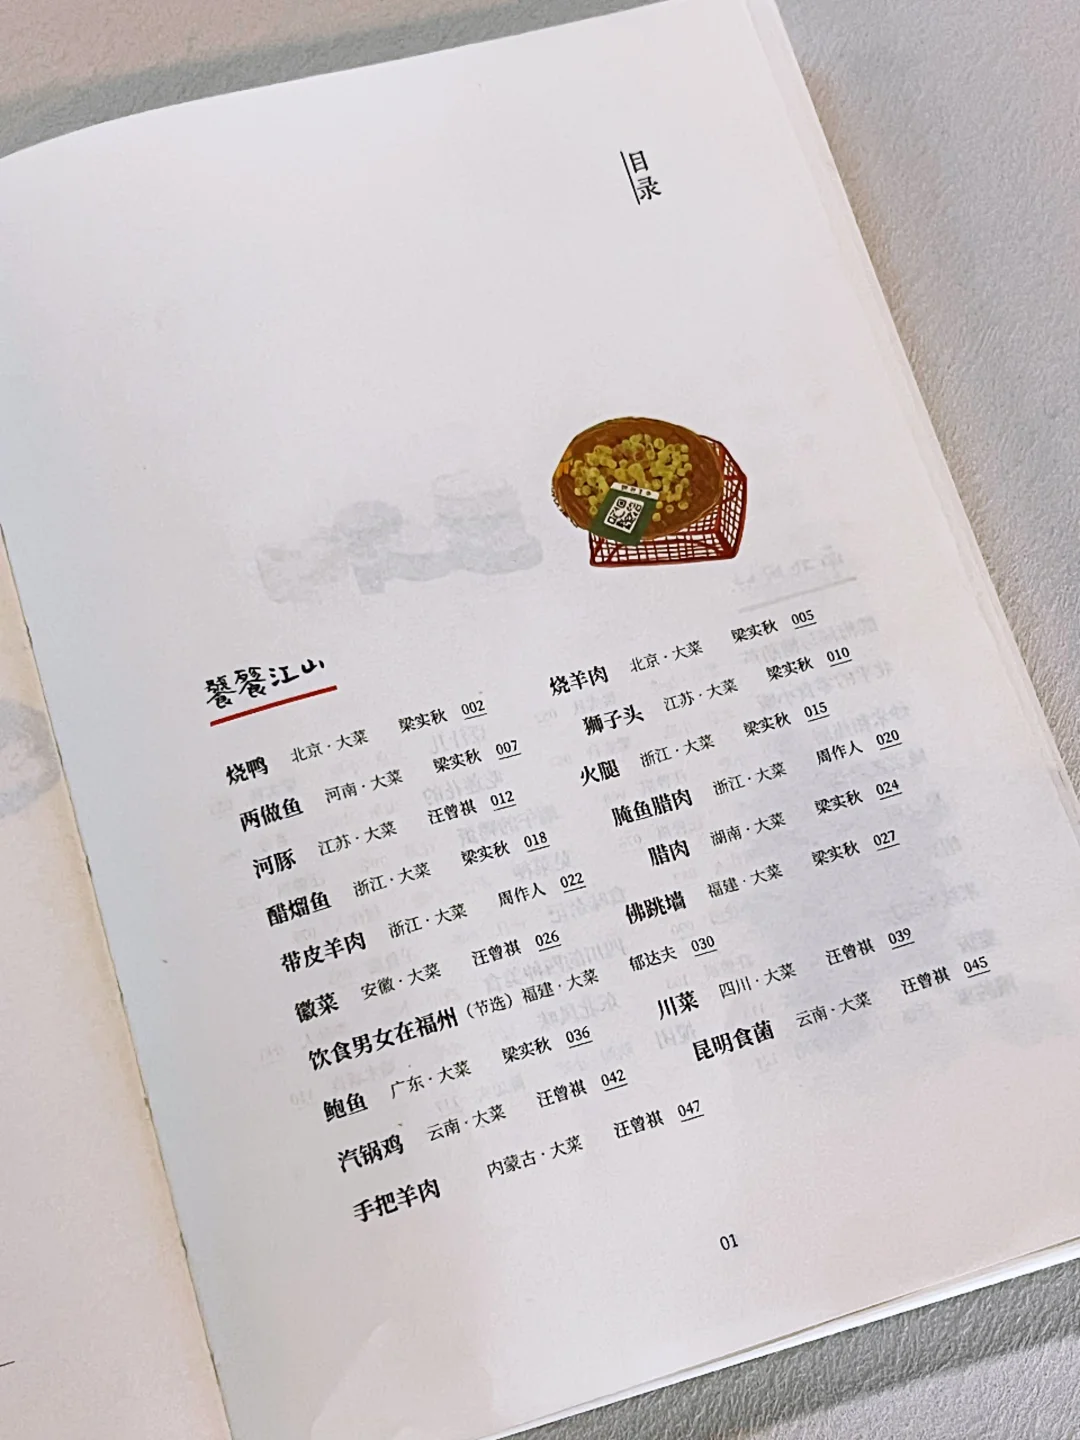 目录
饕餮江山
烧鸭 北京·大菜 梁实秋 002 烧羊肉 北京·大菜 梁实秋 005
两做鱼 河南·大菜 梁实秋 007 狮子头 江苏·大菜 梁实秋 010
河豚 江苏·大菜 汪曾祺 012 火腿 浙江·大菜 梁实秋 015
醋熘鱼 浙江·大菜 梁实秋 018 腌鱼腊肉 浙江·大菜 周作人 020
带皮羊肉 浙江·大菜 周作人 022 腊肉 湖南·大菜 梁实秋 024
徽菜 安徽·大菜 汪曾祺 026 佛跳墙 福建·大菜 梁实秋 027
饮食男女在福州（节选）福建·大菜 郁达夫 030
鲍鱼 广东·大菜 梁实秋 036 川菜 四川·大菜 汪曾祺 039
汽锅鸡 云南·大菜 汪曾祺 042 昆明食菌 云南·大菜 汪曾祺 045
手把羊肉 内蒙古·大菜 汪曾祺 047
01